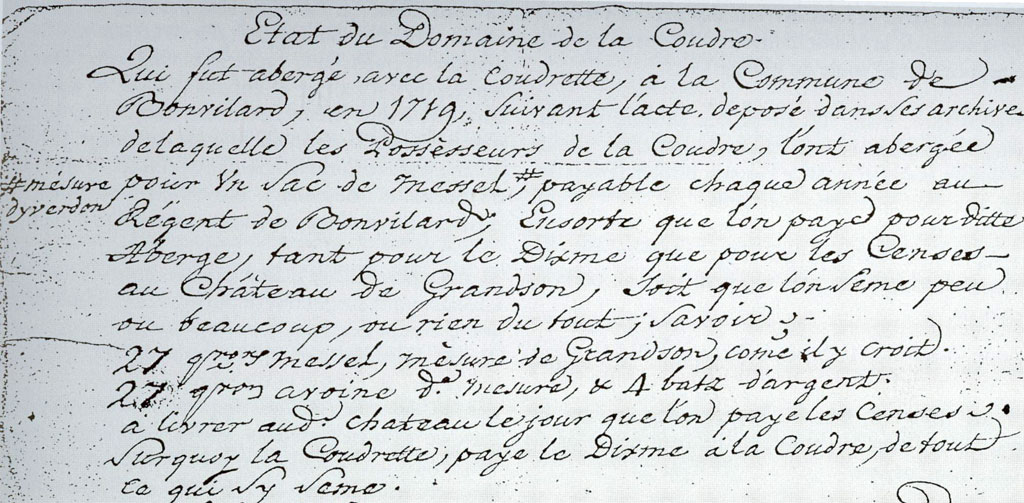 Etat du Domaine de la Coudre.
Qui fut abergé, avec la Coudrette, à la Commune de
Bonvilard, en 1719, suivant l'acte déposé dans ses archives
de laquelle les Possèsseurs de la Coudre, l'ont abergée
# mésure
dyverdon
pour Vn Sac de messel #, payable chaque année au
Régent de Bonvilard; Ensorte que l'on paye pour ditte
Aberge, tant pour le Dixme que pour les Censes
au Château de Grandson, soit que l'on sème peu
ou beaucoup, ou rien du tout; savoir,
27 qrons messel, mèsure de Grandson, come il y croit.
27 qron avoine de. mesure, & 4 batz d'argent.
à livrer aud. chateau le jour que l'on paye les Censes.
Surquoy la Coudrette, paye le Dixme à la Coudre, de tout
ce qui s'y seme.